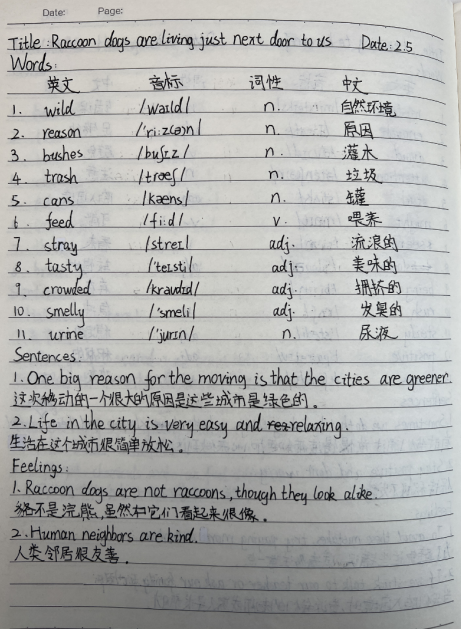 Date: Page:
Title: Raccoon dogs are living just next door to us Date: 2.5
Words:
英文 音标 词性 中文
1. wild /waɪld/ n. 自然环境
2. reason /'ri:z(ə)n/ n. 原因
3. bushes /buʃɪz/ n. 灌木
4. trash /træʃ/ n. 垃圾
5. cans /kæns/ n. 罐
6. feed /fi:d/ v. 喂养
7. stray /streɪ/ adj. 流浪的
8. tasty /'teɪsti/ adj. 美味的
9. crowded /kraʊdɪd/ adj. 拥挤的
10. smelly /'smeli/ adj. 发臭的
11. urine /'jurɪn/ n. 尿液
Sentences:
1. One big reason for the moving is that the cities are greener.
这次移动的一个很大的原因是这些城市是绿色的。
2. Life in the city is very easy and relaxing.
生活在这个城市很简单放松。
Feelings:
1. Raccoon dogs are not raccoons, though they look alike.
貉不是浣熊,虽然它们看起来很像。
2. Human neighbors are kind.
人类邻居很友善。